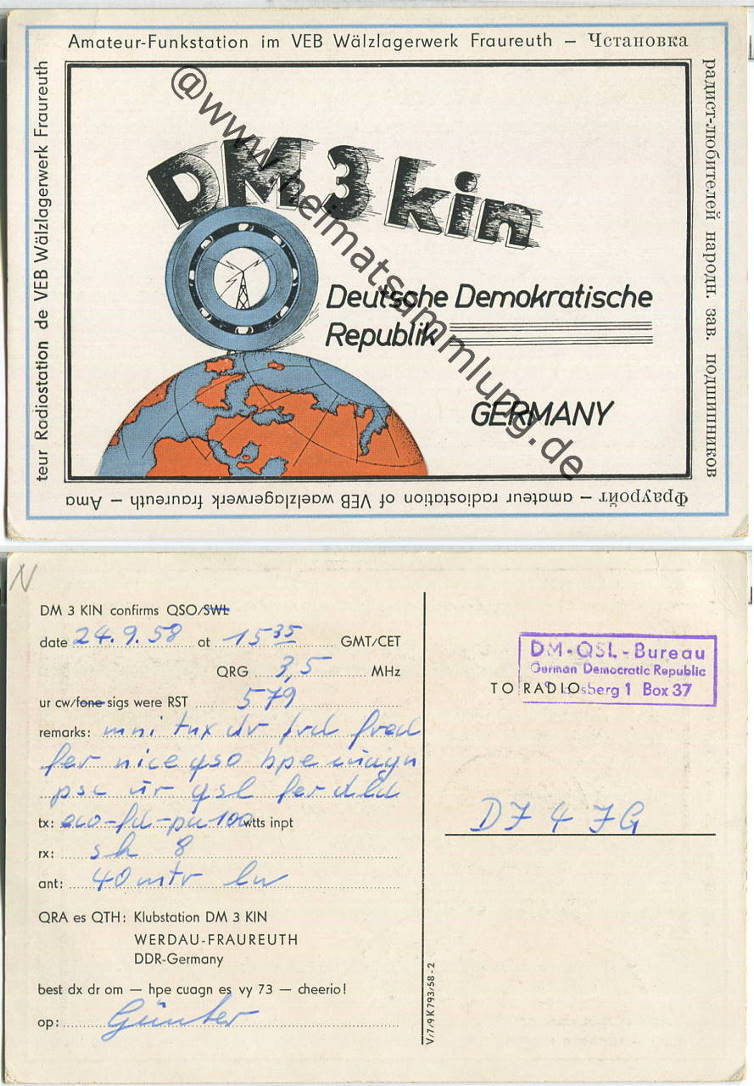 Amateur-Funkstation im VEB Wälzlagerwerk Fraureuth – Чстановка
радист-любителей народн. зав. подшипников
Фрауройт – amateur radiostation of VEB waelzlagerwerk fraureuth – Ama
teur Radiostation de VEB Wälzlagerwerk Fraureuth
@www.heimatsammlung.de
DM 3 kin
Deutsche Demokratische
Republik
GERMANY
DM 3 KIN confirms QSO/SWL
date 24.9.58 at 15 35 GMT/CET
QRG 3,5 MHz
ur cw/fone sigs were RST 579
remarks: mni tnx dr frd fred
fer nice qso hpe cuagn
pse ur qsl fer dld
tx: eco-fd-pa 100 wtts inpt
rx: sh 8
ant: 40 mtr lw
QRA es QTH: Klubstation DM 3 KIN
WERDAU-FRAUREUTH
DDR-Germany
best dx dr om — hpe cuagn es vy 73 — cheerio!
op: Günter
V/7/9 K 793/58 - 2
DM-QSL-Bureau
German Democratic Republic
TO RADIO
sberg 1 Box 37
DJ 4 JG
N